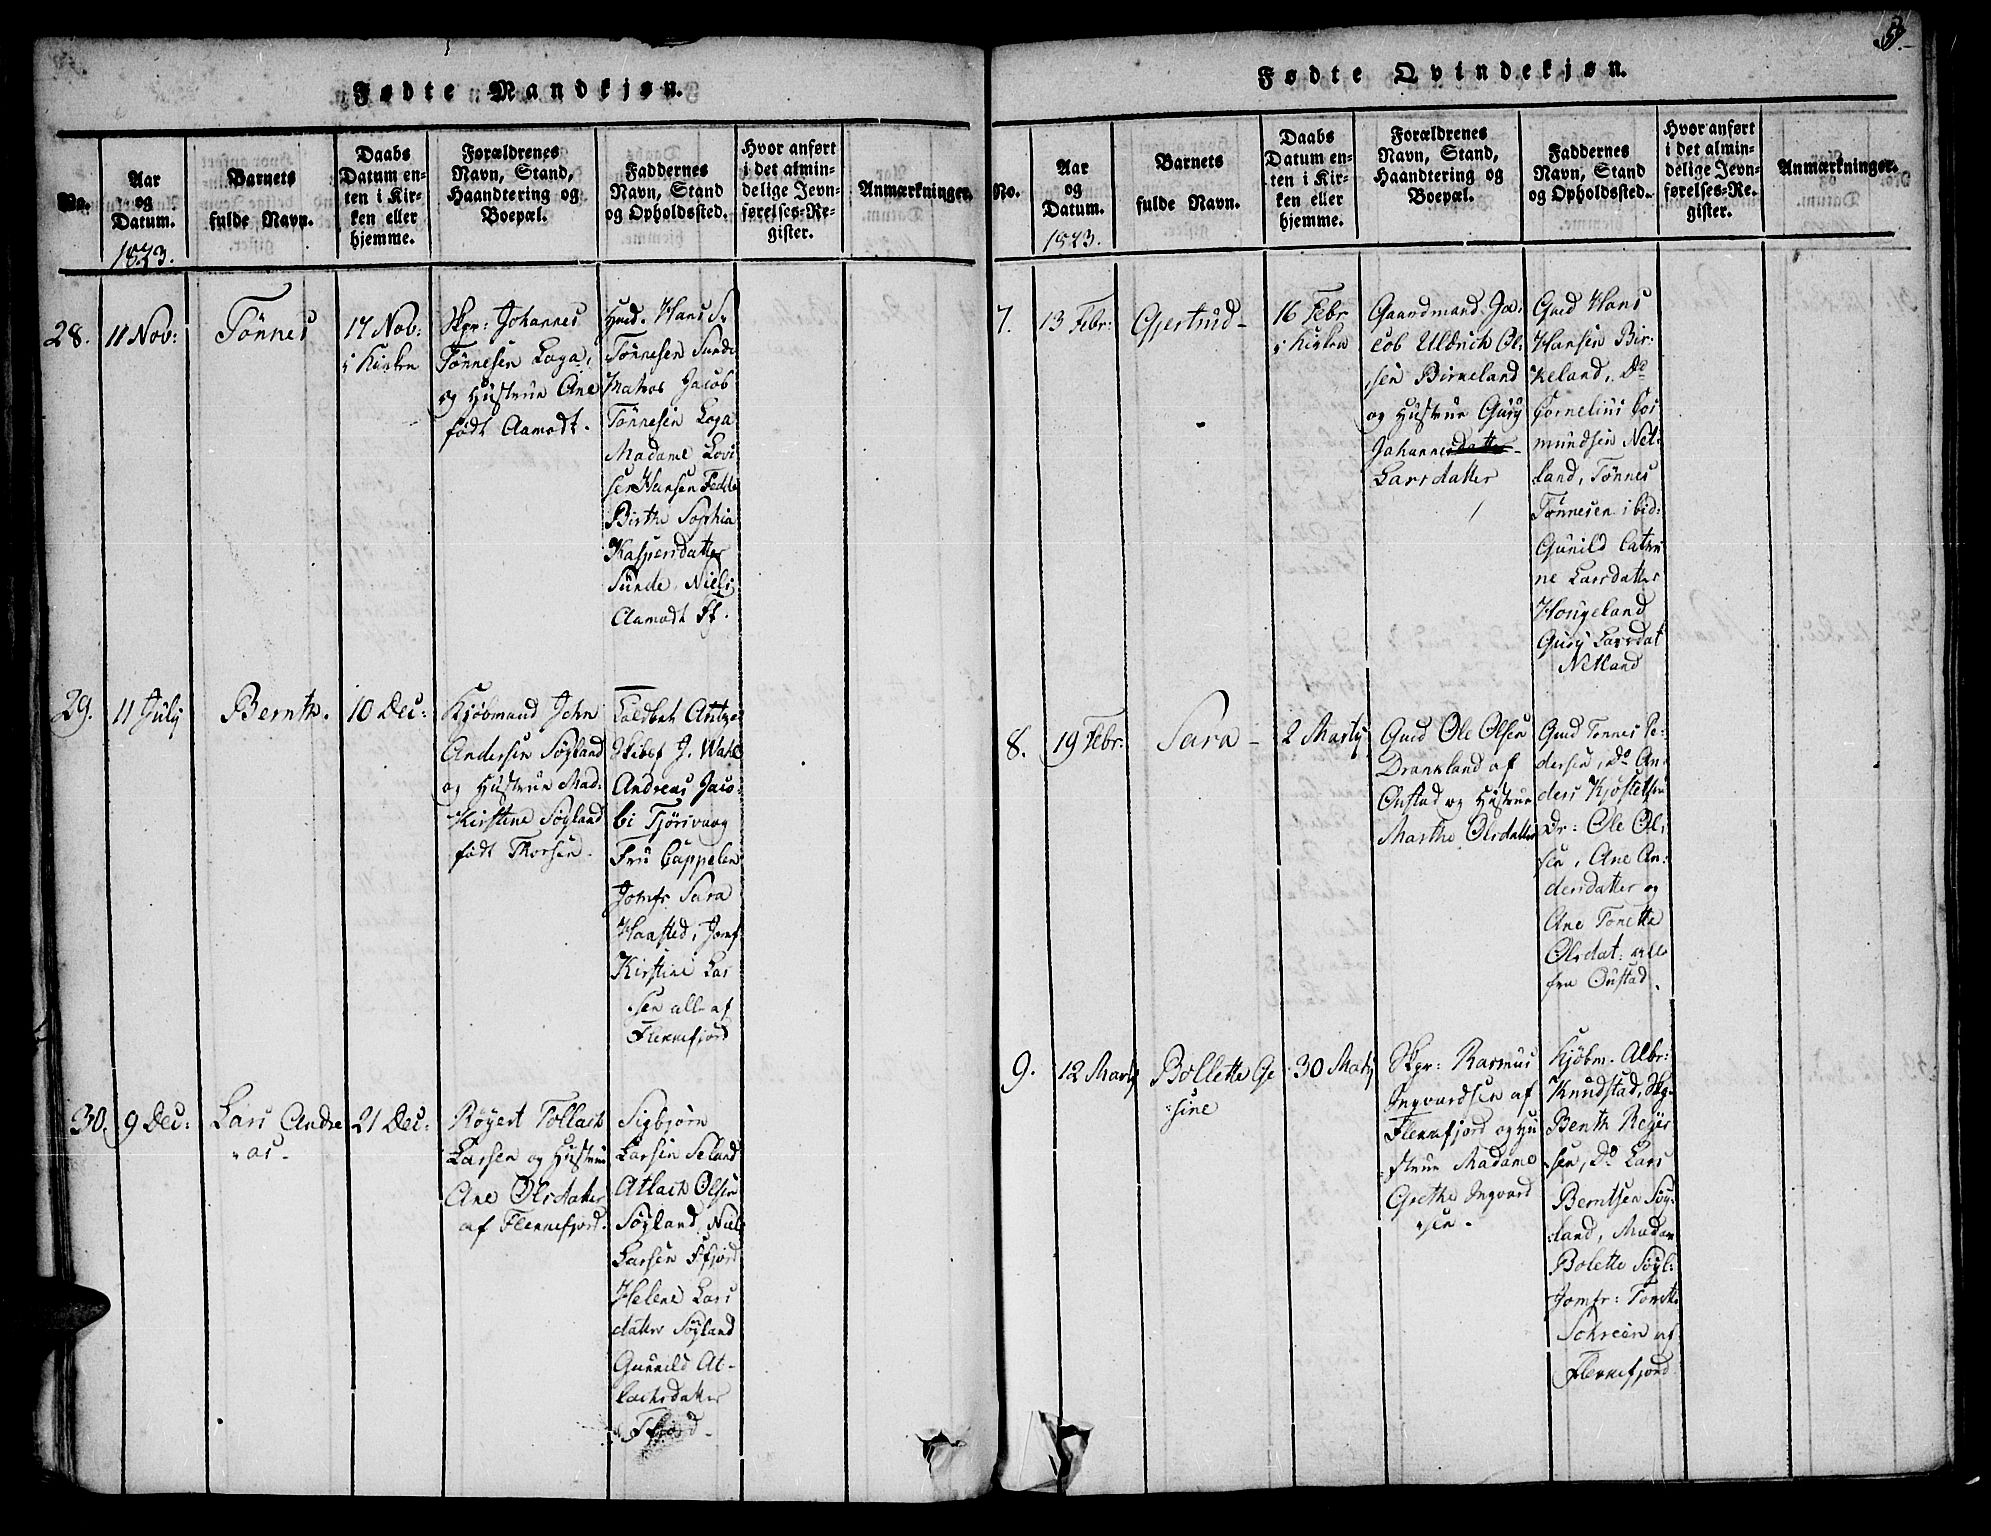 Fødte Mandkjøn.
No.
Aar
og
Datum.
1823.
Barnets
fulde Navn.
Daabs
Datum en-
ten i Kir-
ken eller
hjemme.
Forældrenes
Navn, Stand,
Haandtering og
Boepæl.
Faddernes
Navn, Stand
og Opholdssted.
Hvor anført
i det almin-
delige Jevn-
førelses-Re-
gister.
Anmærkninger.
28.
11 Nov:
Tönnes
17 Nov:
i Kirken
Skpr: Johannes
Tönnesen Loga,
og Hustrue Ane
födt Aamodt.
Hans S.
Tönnesen Sunde
Matros Jacob
Tönnesen Loga
Madame Lovi
se Hansen Fedde
Birthe Sophia
Kaspersdatter
Sunde, Niels
Aamodt Ff.
29.
11 July
Bernth.
10 Dec:
Kjöbmand John
Andersen Söyland
og Hustrue Mad:
Kirstine Söyland
födt Thorsen.
J. Wahl
Andreas Jaco-
bi Tjörsvaag
Fru Cappelen
Jomfr Sara
Haasted, Jomf
Kirstine Lar
sen alle af
Flekkefjord
30.
9 Dec:
Lars Andre
as-
21 Dec:
Röyert Tollach
Larsen og Hustrue
Ane Olsdatter
af Flekkefjord.
Sigbjörn
Larsen Seland
Atlach Olsen
Söyland, Niels
Larsen Ffjord
Helene Lars
datter Söyland
Gunnild At-
lachsdatter
Ffjord.
9.
Fødte Qvindekjøn.
No.
Aar
og
Datum.
1823.
Barnets
fulde Navn.
Daabs
Datum en-
ten i Kir-
ken eller
hjemme.
Forældrenes
Navn, Stand,
Haandtering og
Boepæl.
Faddernes
Navn, Stand
og Opholdssted.
Hvor anført
i det almin-
delige Jevn-
førelses-Re-
gister.
Anmærkninger.
7.
13 Febr:
Gjertrud-
16 Febr
i Kirken
Gaardmand Ja-
cob Uldrich Ol-
sen Birkeland
og Hustrue Gury
Johannesdatter-
Larsdatter
Gmd Hans
Hansen Bir-
keland, Do
Cornelius Gos
mundsen Net-
land, Tönnes
Tönnesen ibid:
Gunild Cathri
ne Larsdatter
Hougeland
Gury Larsdat
Netland
8.
19 Febr:
Sara-
2 Marty
Gmd Ole Olsen
Drankland af
Oustad og Hustrue
Marthe Olsdatter
Gmd Tönnes Pe-
dersen, Do An-
ders Kjöstelsen
Dr: Ole Ol-
sen, Ane An-
dersdatter og
Ane Tonette
Olsdat: alle
fra Oustad.
9.
12 Marty
Bollette Ge
sine
30 Marty
Skpr: Rasmus
Ingvardsen af
Flekkefjord og Hu
strue Madame
Grethe Ingvard
sen-
Kjöbm. Albr:
Knudstad, Skp.
Benth Reyer
sen, Do Lars
Berntsen Söy-
land, Madam
Bolette Söyl:
Jomfr: Tonett.
Schreen af
Flekkefjord